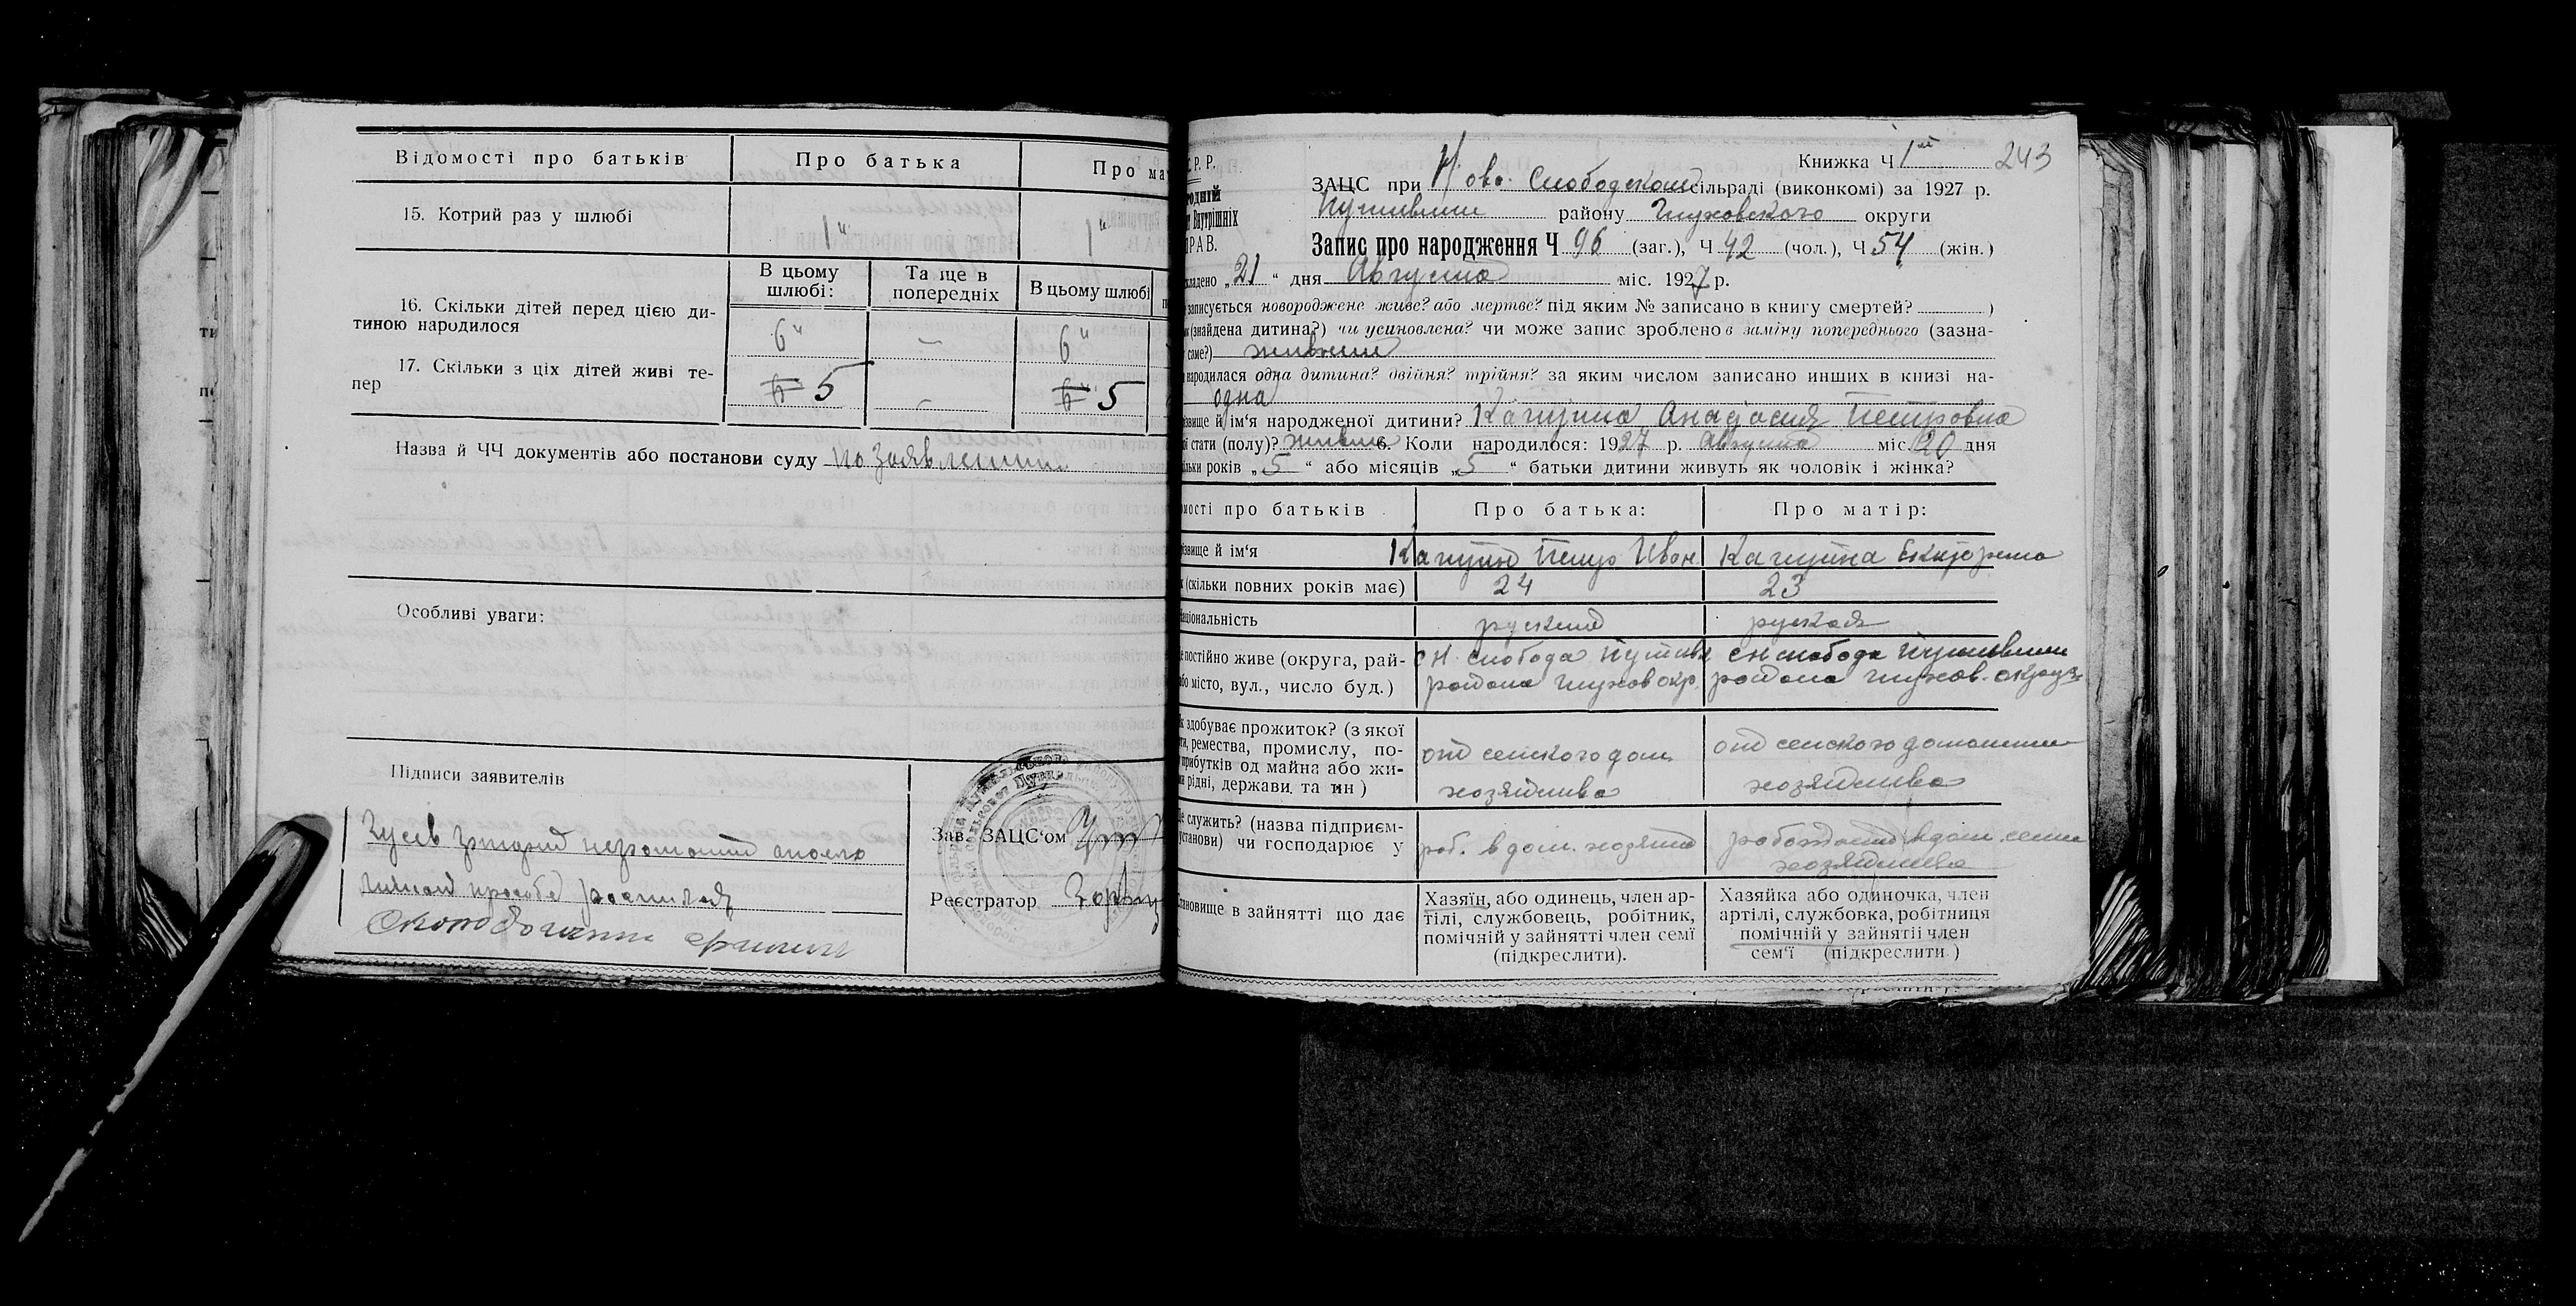 Відомості про батьків
Про батька
Про ма
15. Котрий раз у шлюбі
1"
1"
В цьому шлюбі:
Та ще в попередніх
В цьому шлюбі
16. Скільки дітей перед цією ди-
тиною народилося
6"
—
6"
17. Скільки з ціх дітей живі те-
пер
6 5
—
6 5
Назва й ЧЧ документів або постанови суду по заявлению
Особливі уваги:
Підписи заявителів
Гусев неграмотный а по его
личной просьбе
Зав. ЗАЦС'ом
Реєстратор
Книжка Ч 1й 243
С.Р.Р.
ЗАЦС при Ново Слободском сільраді (виконкомі) за 1927 р.
Внутрішніх
Путивльш району Глуховского округи
ПРАВ.
Запис про народження Ч 96 (заг.), Ч 42 (чол.), Ч 54 (жін.)
кладено „21" дня Августа міс. 1927 р.
записується новороджене живе? або мертве? під яким № записано в книгу смертей? )
(знайдена дитина?) чи усиновлена? чи може запис зроблено в заміну попереднього (зазна-
саме?)
народилася одна дитина? двійня? трійня? за яким числом записано инших в книзі на-
одна
звище й ім'я народженої дитини? Петровна
стати (полу)? 6. Коли народилося: 1927 р. Августа міс. 20 дня
льки років „5" або місяців „5" батьки дитини живуть як чоловік і жінка?
мості про батьків
Про батька:
Про матір:
звище й ім'я
Петр Иван
(скільки повних років має)
24
23
Національність
руский
руская
постійно живе (округа, рай-
бо місто, вул., число буд.)
с Н. слобода Путивл
района Глухов окр.
с Н слобода Путивльш
района Глухов. округ
здобуває прожиток? (з якої
ремества, промислу, по-
прибутків од майна або жи-
рідні, держави та ин)
от сельского дом.
хозяйства
от сельского домашн
хозяйства
служить? (назва підприєм-
установи) чи господарює у
раб. в дом. хозяйст
работает в дом. сельск
хозяйства
тановище в зайнятті що дає
Хазяїн, або одинець, член ар-
тілі, службовець, робітник,
помічній у зайнятті член семї
(підкреслити).
Хазяйка або одиночка, член
артілі, службовка, робітниця
помічній у зайнятіі член
сем'ї (підкреслити)